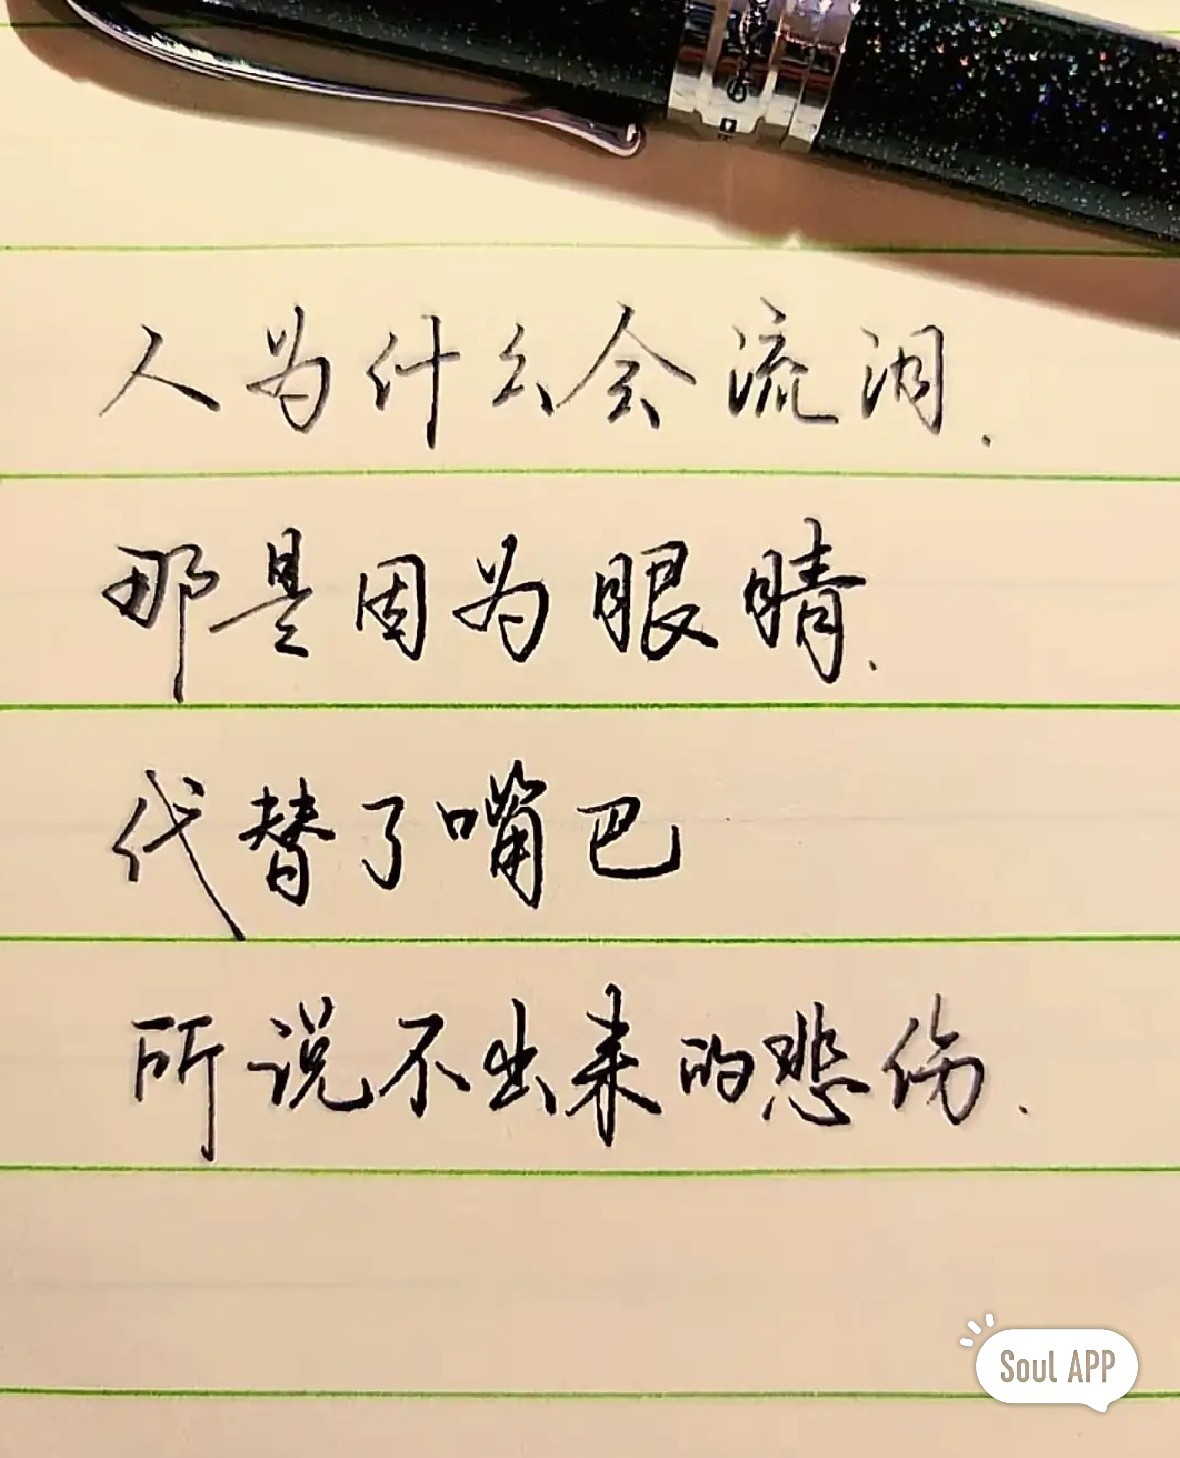 人为什么会流泪.
那是因为眼睛.
代替了嘴巴
所说不出来的悲伤.
Soul APP